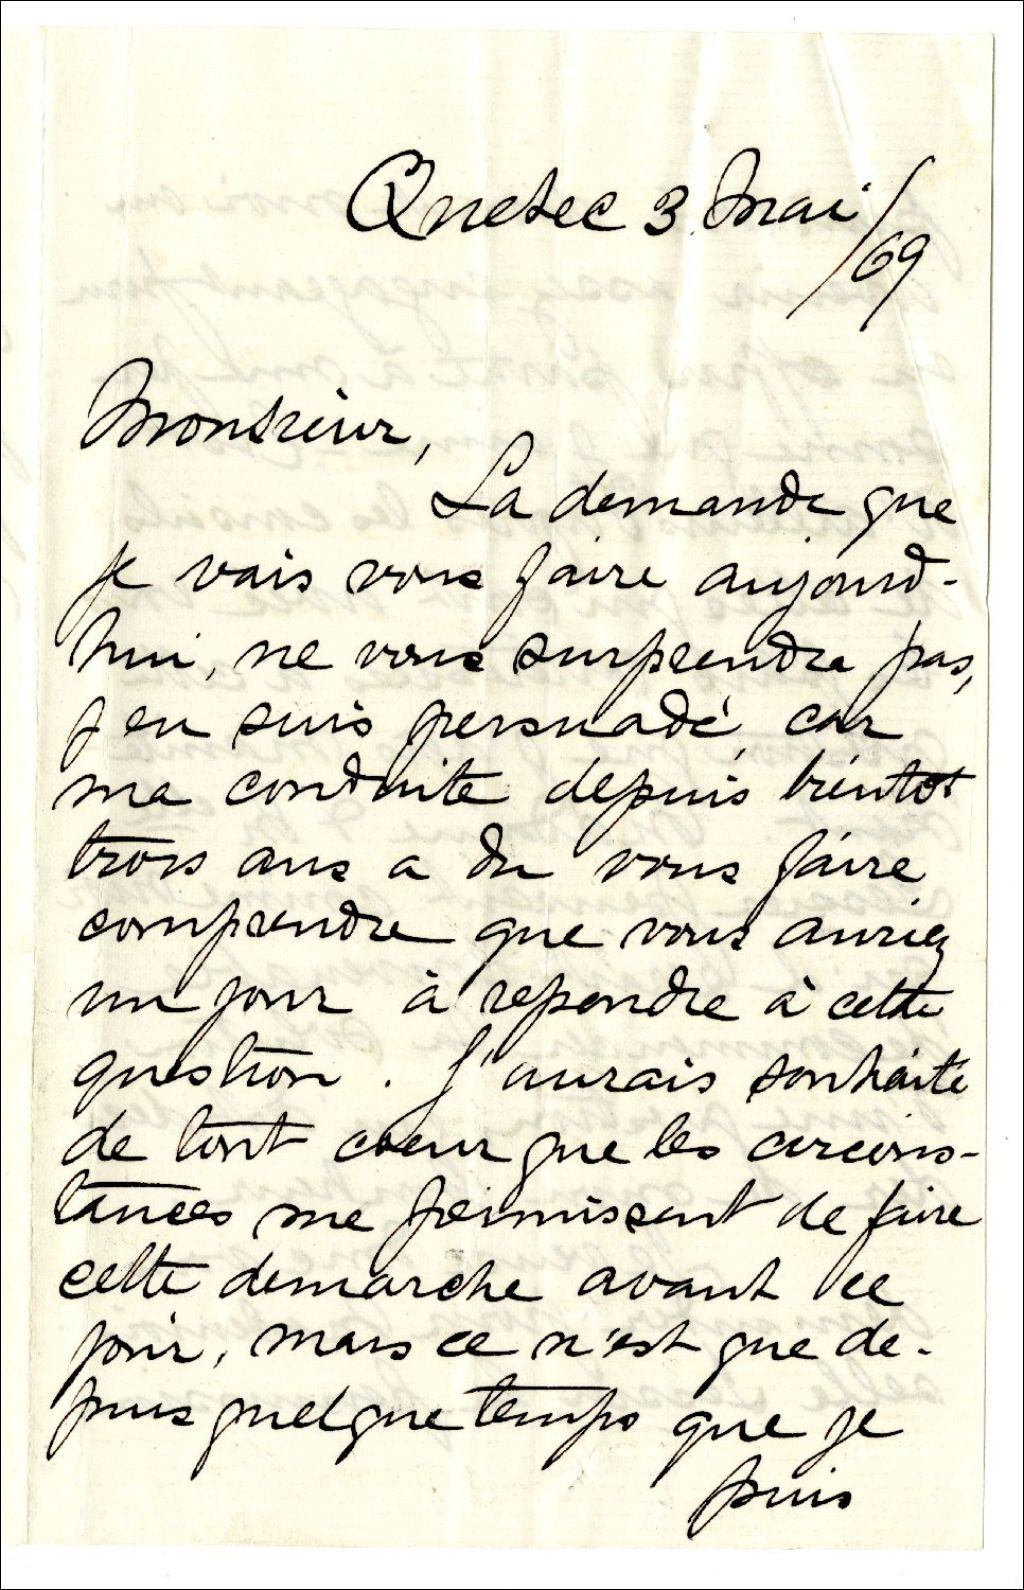 Quebec 3 Mai /69
Monsieur,
La demande que
je vais vous faire aujourd-
hui, ne vous surprendra pas,
j en suis persuadé, car
ma conduite depuis bientot
trois ans a du vous faire
comprendre que vous auriez
un jour à repondre à cette
question. J'aurais souhaité
de tout coeur que les circons-
tances me permissent de faire
cette demarche avant ce
jour, mais ce n'est que de-
puis quelque temps que je
puis